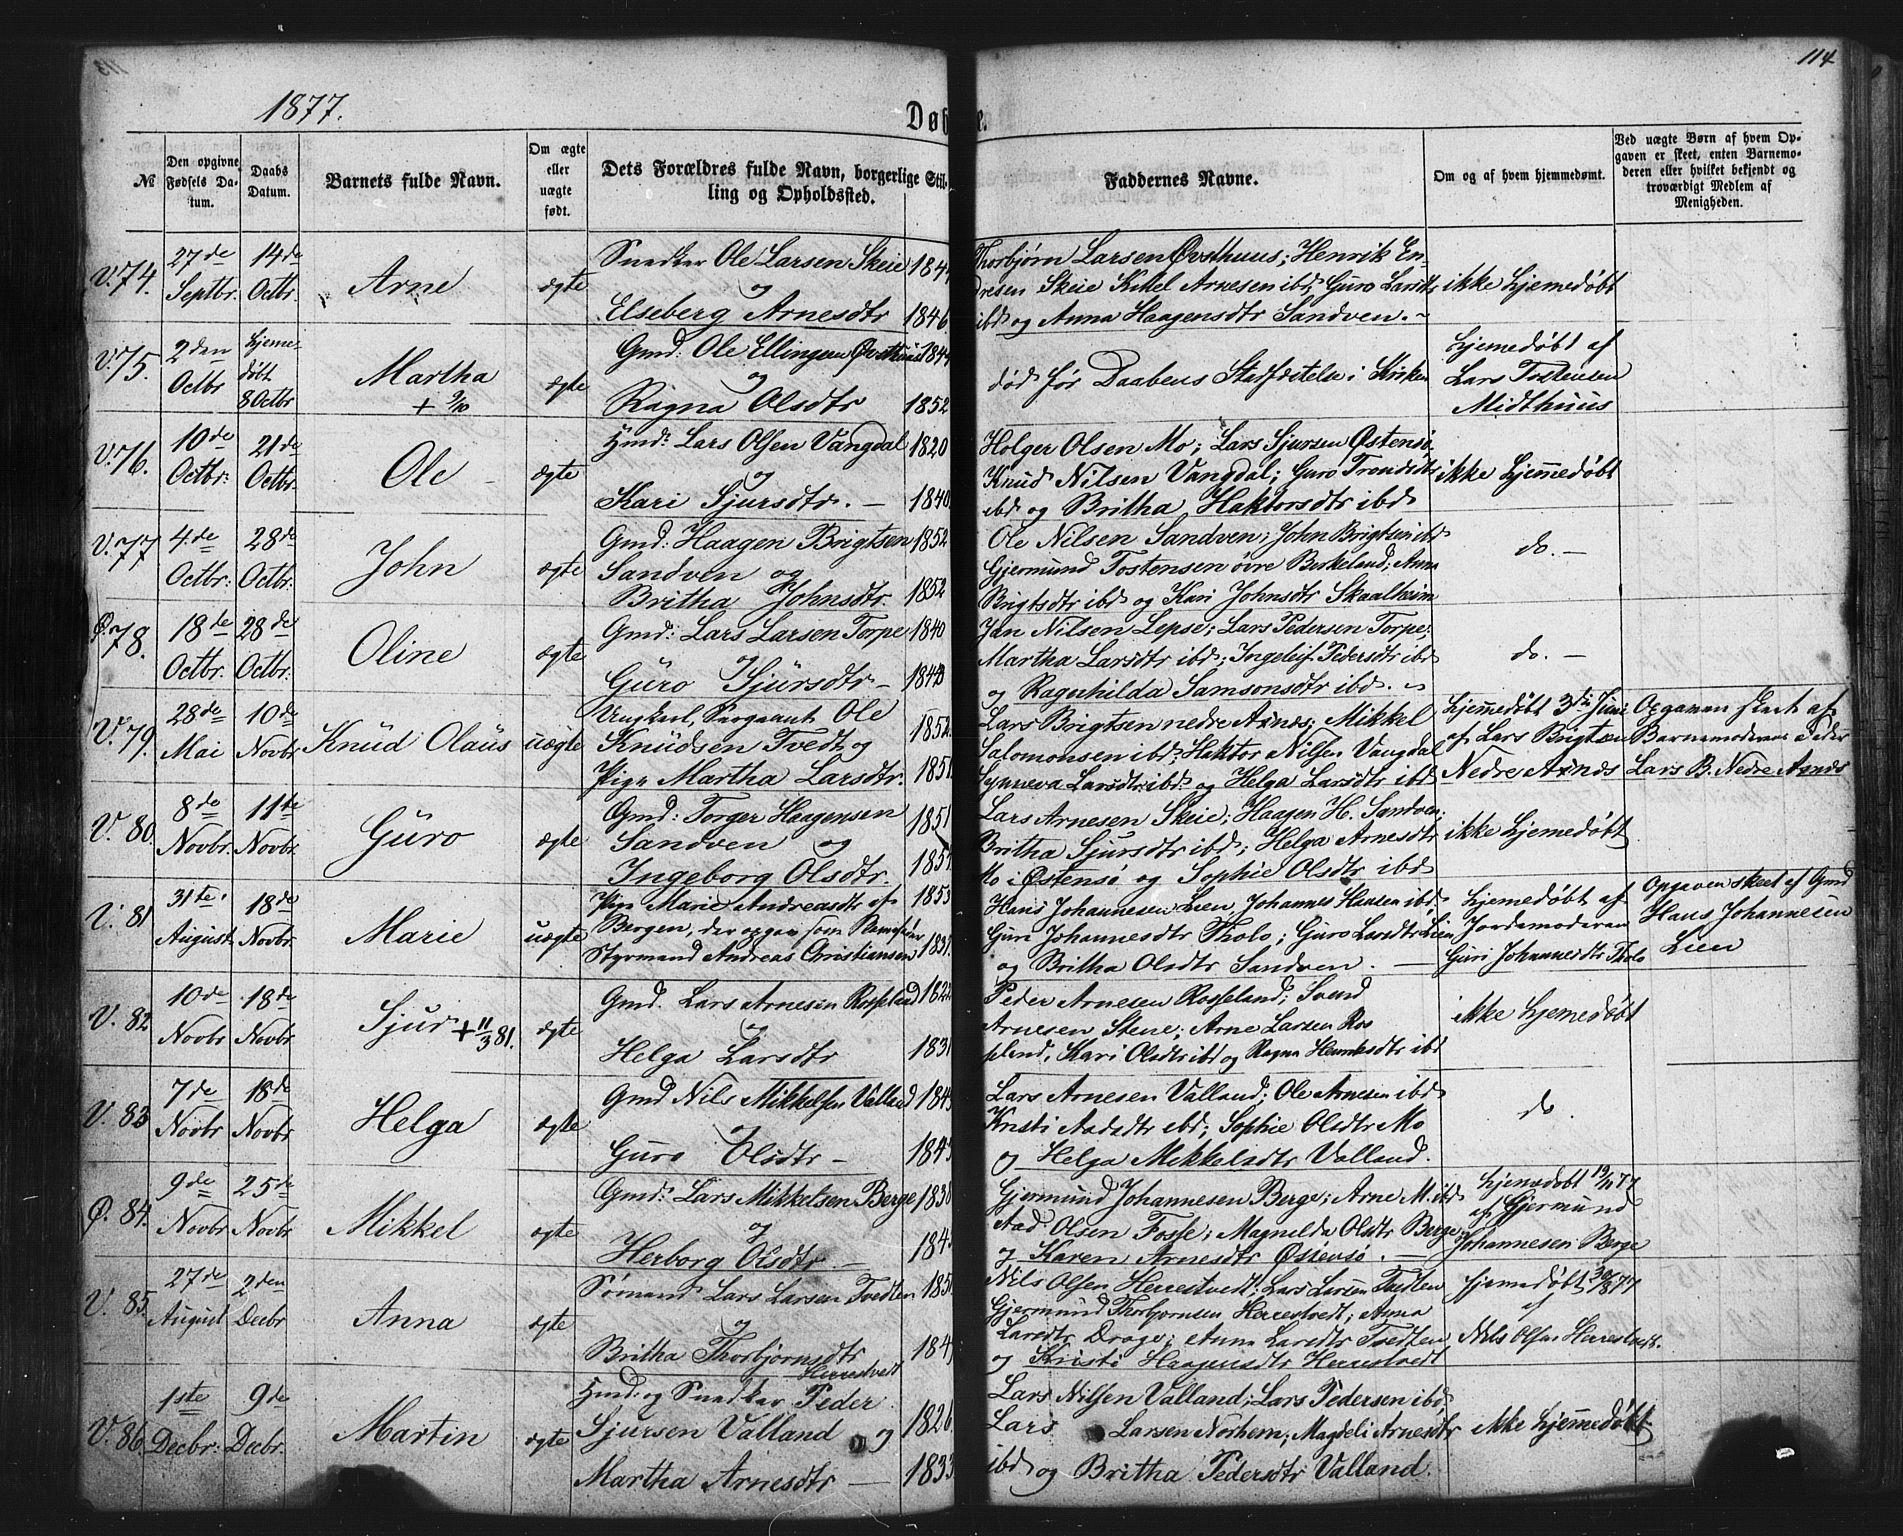 114
1877.
Døbte.
№
Den opgivne Fødsels Datum.
Daabs Datum.
Barnets fulde Navn.
Om ægte eller uægte født.
Dets Forældres fulde Navn, borgerlige Stilling og Opholdssted.
Faddernes Navne.
Om og af hvem hjemmedømt.
Ved uægte Børn af hvem Opgaven er skeet, enten Barnemoderen eller hvilket bekjendt og troværdigt Medlem af Menigheden.
V. 74. 27de Septbr. 14de Octbr. Arne ægte
Snedker Ole Larsen Skeie 1844
og
Elseberg Arnesdtr 1846
Thorbjørn Larsen Øvsthuus; Henrik En-
dresen Skeie Kikel Arnesen ibd; Guro Larsdtr
ibd og Anna Haagensdtr Sandven.
ikke hjemedøbt
V. 75. 2den Octbr hjemedøbt 8 Octbr Martha + 9/10 ægte
Gmd: Ole Ellingsen Øvsthuus 1844
og
Ragna Olsdtr 1852
død før Daabens Stadfæstelse i Kirken
hjemedøbt af
Lars Tostensen
Midthuus
V. 76. 10de Octbr: 21de Octbr. Ole ægte
Hmd: Lars Olsen Vangdal 1820
og
Kari Sjursdtr. 1840
Holger Olsen Mo; Lars Sjursen Østensø,
Knud Nilsen Vangdal; Guro Trondsdtr
ibd og Britha Haktorsdtr ibd
ikke hjemedøbt
V. 77 4de Octbr: 28de Octbr. John ægte
Gmd: Haagen Brigtsen 1852
Sandven og
Britha Johnsdtr. 1852
Ole Nilsen Sandven; John Brigtsen ibd
Gjermund Tostensen øvre Berkeland; Anna
Brigtsdtr ibd og Kari Johnsdtr Skaalheim
do. —
Ø. 78. 18de Octbr. 28de Octbr. Oline ægte
Gmd: Lars Larsen Torpe 1840
og
Guro Sjursdtr 1843
Jan Nilsen Lepse; Lars Pedersen Torpe;
Martha Larsdtr ibd; Ingeleif Pedersdtr ibd
og Ragnhilda Samsonsdtr ibd.
do. —
V. 79. 28de Mai 10de Novbr Knud Olaus uægte
Ungkarl, Sergeant Ole 1852
Knudsen Tvedt og
Pige Martha Larsdtr. 1851
Lars Brigtsen nedre Axnes; Mikkel
Salomonsen ibd; Haktor Nilsen Vangdal
Synneva Larsdtr ibd og Helga Larsdtr ibd
hjemedøbt 3die Juni
af Lars Brigtsen
Nedre Axnes
Opgaven skeet af
Barnemoderens Fader
Lars B. Nedre Axnes
V. 80. 8de Novbr. 11te Novbr. Guro ægte
Gmd: Torger Haagensen 1851
Sandven og
Ingeborg Olsdtr. 1851
Lars Arnesen Skeie; Haagen H. Sandven;
Britha Sjursdtr ibd; Helga Arnesdtr
Mo i Østensø og Sophie Olsdtr ibd
ikke hjemedøbt
V. 81 31te August 18de Novbr. Marie uægte
Pige Marie Andreasdtr af 1855
Bergen, der opgav som Barnefader
Styrmand Andreas Christiansen 1831.
Hans Johannesen Lien, Johannes Hansen ibd,
Guri Johannesdtr Tholo; Guro Larsdtr Lien
og Britha Olsdtr Sandven.
hjemedøbt af
Jordemoderen
Guri Johannesdtr Tholo
Opgaven skeet af Gmd
Hans Johannesen
Lien
V. 82 10de Novbr 18de Novbr. Sjur + 11/3 81. ægte
Gmd. Lars Arnesen Rosseland 1822
og
Helga Larsdtr 1831
Peder Arnesen Rosseland; Svend
Arnesen Stene; Arne Larsen Ros
seland, Kari Olsdtr ibd og Ragna Henriksdtr ibd
ikke hjemedøbt
V. 83 7de Novbr 18de Novbr Helga ægte
Gmd Nils Mikkelsen Valland 1843
og
Guro Olsdtr 1845
Lars Arnesen Valland; Ole Arnesen ibd
Kristi Aadsdtr ibd; Sophie Olsdtr Mo
og Helga Mikkelsdtr Valland.
do.
Ø. 84. 9de Novbr 25de Novbr Mikkel ægte
Gmd: Lars Mikkelsen Berge 1838
og
Herborg Olsdtr. 184
Gjermund Johannesen Berge; Arne M. ibd
Aad Olsen Fosse; Magnilda Olsdtr Berge
og Karen Arnesdtr Østensø.
hjemedøbt 19/11 77
af Gjermund
Johannesen Berge
V. 85. 27de August 2den Decbr Anna ægte
Sømand Lars Larsen Tvedten 185
og
Britha Thorbjørnsdtr 184
Herrestvedt
Nils Olsen Herrestvedt; Lars Larsen Tvedten
Gjermund Thorbjørnsen Herrestvedt; Anna
Larsdtr Drage; Anna Larsdtr Tvedten
og Kristi Haagensdtr Herrestvedt
hjemedøbt 30/8 77
af
Nils Olsen Herrestvedt.
V. 86. 1ste Decbr: 9de Decbr. Martin ægte
Hmd: og Snedker Peder
Sjursen Valland og 1826
Martha Arnesdtr 1833
Lars Nilsen Valland; Lars Pedersen ibd;
Lars Larsen Norheim; Magdeli Arnesdtr
ibd og Britha Pedersdtr Valland.
ikke hjemedøbt